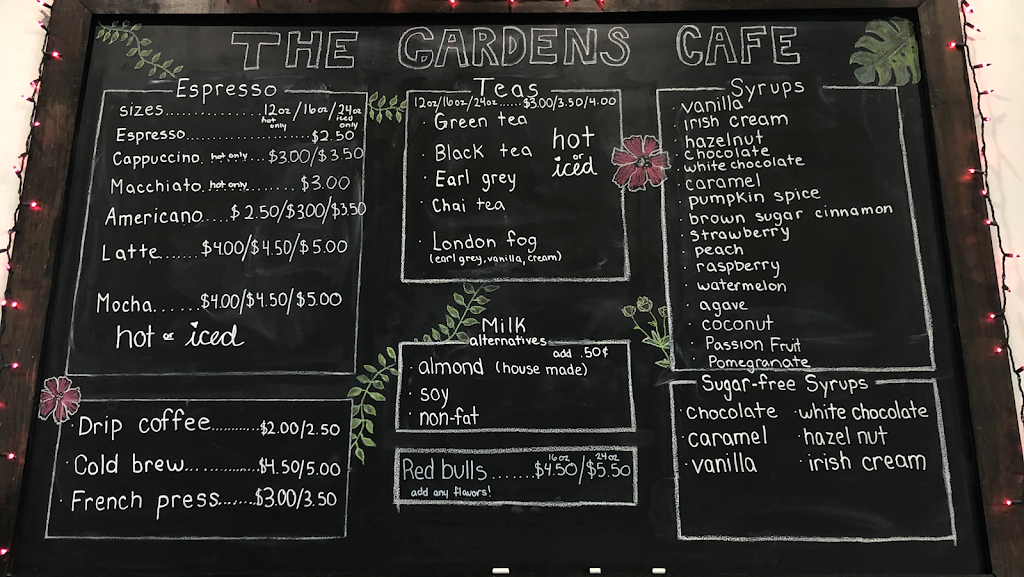 THE GARDENS CAFE
Espresso
sizes...............12oz/16oz/24oz
hot only iced only
Espresso....................$2.50
Cappuccino. hot only....$3.00/$3.50
Macchiato. hot only........$3.00
Americano.....$2.50/$3.00/$3.50
Latte.......$4.00/$4.50/$5.00
Mocha......$4.00/$4.50/$5.00
hot or iced
· Drip coffee...........$2.00/2.50
· Cold brew...............$4.50/5.00
· French press.......$3.00/3.50
Teas
12oz/16oz/24oz......$3.00/3.50/4.00
· Green tea
· Black tea
· Earl grey
· Chai tea
hot or iced
· London fog
(earl grey, vanilla, cream)
Milk
alternatives
add .50¢
· almond (house made)
· soy
· non-fat
16oz 24oz
Red bulls.......$4.50/$5.50
add any flavors!
Syrups
· vanilla
· irish cream
· hazelnut
· chocolate
· white chocolate
· caramel
· pumpkin spice
· brown sugar cinnamon
· strawberry
· peach
· raspberry
· watermelon
· agave
· coconut
· Passion Fruit
· Pomegranate
Sugar-free Syrups
· chocolate · white chocolate
· caramel · hazel nut
· vanilla · irish cream